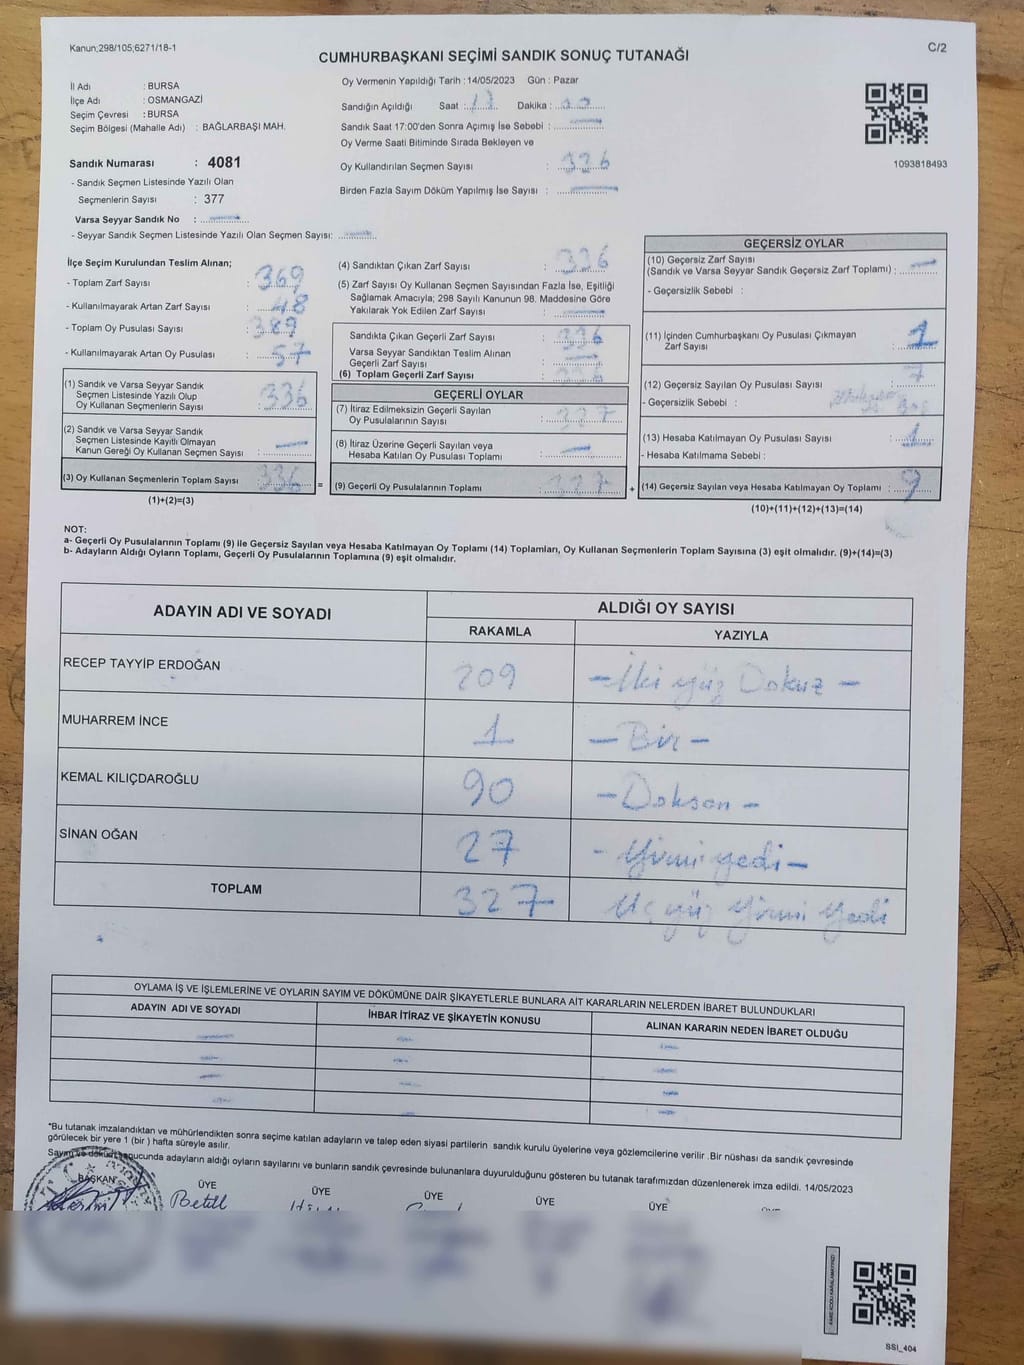 Kanun;298/105;6271/18-1
C/2
CUMHURBAŞKANI SEÇİMİ SANDIK SONUÇ TUTANAĞI
İl Adı : BURSA
İlçe Adı : OSMANGAZİ
Seçim Çevresi : BURSA
Seçim Bölgesi (Mahalle Adı) : BAĞLARBAŞI MAH.
Sandık Numarası : 4081
- Sandık Seçmen Listesinde Yazılı Olan
Seçmenlerin Sayısı : 377
Varsa Seyyar Sandık No :
- Seyyar Sandık Seçmen Listesinde Yazılı Olan Seçmen Sayısı:
Oy Vermenin Yapıldığı Tarih : 14/05/2023 Gün : Pazar
Sandığın Açıldığı Saat : Dakika :
Sandık Saat 17:00'den Sonra Açımış İse Sebebi :
Oy Verme Saati Bitiminde Sırada Bekleyen ve
Oy Kullandırılan Seçmen Sayısı :
Birden Fazla Sayım Döküm Yapılmış İse Sayısı :
1093818493
İlçe Seçim Kurulundan Teslim Alınan;
- Toplam Zarf Sayısı : 369
- Kullanılmayarak Artan Zarf Sayısı : 48
- Toplam Oy Pusulası Sayısı : 389
- Kullanılmayarak Artan Oy Pusulası : 57
(1) Sandık ve Varsa Seyyar Sandık
Seçmen Listesinde Yazılı Olup
Oy Kullanan Seçmenlerin Sayısı : 336
(2) Sandık ve Varsa Seyyar Sandık
Seçmen Listesinde Kayıtlı Olmayan
Kanun Gereği Oy Kullanan Seçmen Sayısı :
(3) Oy Kullanan Seçmenlerin Toplam Sayısı : 336
(1)+(2)=(3)
(4) Sandıktan Çıkan Zarf Sayısı : 336
(5) Zarf Sayısı Oy Kullanan Seçmen Sayısından Fazla İse, Eşitliği
Sağlamak Amacıyla; 298 Sayılı Kanunun 98. Maddesine Göre
Yakılarak Yok Edilen Zarf Sayısı :
Sandıkta Çıkan Geçerli Zarf Sayısı : 336
Varsa Seyyar Sandıktan Teslim Alınan
Geçerli Zarf Sayısı :
(6) Toplam Geçerli Zarf Sayısı : 336
GEÇERLİ OYLAR
(7) İtiraz Edilmeksizin Geçerli Sayılan
Oy Pusulalarının Sayısı : 327
(8) İtiraz Üzerine Geçerli Sayılan veya
Hesaba Katılan Oy Pusulası Toplamı :
= (9) Geçerli Oy Pusulalarının Toplamı : 327
GEÇERSİZ OYLAR
(10) Geçersiz Zarf Sayısı
(Sandık ve Varsa Seyyar Sandık Geçersiz Zarf Toplamı) :
- Geçersizlik Sebebi :
(11) İçinden Cumhurbaşkanı Oy Pusulası Çıkmayan
Zarf Sayısı : 1
(12) Geçersiz Sayılan Oy Pusulası Sayısı : 7
- Geçersizlik Sebebi :
(13) Hesaba Katılmayan Oy Pusulası Sayısı : 1
- Hesaba Katılmama Sebebi :
+ (14) Geçersiz Sayılan veya Hesaba Katılmayan Oy Toplamı : 9
(10)+(11)+(12)+(13)=(14)
NOT:
a- Geçerli Oy Pusulalarının Toplamı (9) ile Geçersiz Sayılan veya Hesaba Katılmayan Oy Toplamı (14) Toplamları, Oy Kullanan Seçmenlerin Toplam Sayısına (3) eşit olmalıdır. (9)+(14)=(3)
b- Adayların Aldığı Oyların Toplamı, Geçerli Oy Pusulalarının Toplamına (9) eşit olmalıdır.
ADAYIN ADI VE SOYADI
ALDIĞI OY SAYISI
RAKAMLA YAZIYLA
RECEP TAYYİP ERDOĞAN 209 - İki yüz Dokuz -
MUHARREM İNCE 1 - Bir -
KEMAL KILIÇDAROĞLU 90 - Doksan -
SİNAN OĞAN 27 - Yirmi yedi -
TOPLAM 327 Üç yüz Yirmi Yedi
OYLAMA İŞ VE İŞLEMLERİNE VE OYLARIN SAYIM VE DÖKÜMÜNE DAİR ŞİKAYETLERLE BUNLARA AİT KARARLARIN NELERDEN İBARET BULUNDUKLARI
ADAYIN ADI VE SOYADI İHBAR İTİRAZ VE ŞİKAYETİN KONUSU ALINAN KARARIN NEDEN İBARET OLDUĞU
*Bu tutanak imzalandıktan ve mühürlendikten sonra seçime katılan adayların ve talep eden siyasi partilerin sandık kurulu üyelerine veya gözlemcilerine verilir .Bir nüshası da sandık çevresinde
görülecek bir yere 1 (bir ) hafta süreyle asılır.
Sayım ve döküm sonucunda adayların aldığı oyların sayılarını ve bunların sandık çevresinde bulunanlara duyurulduğunu gösteren bu tutanak tarafımızdan düzenlenerek imza edildi. 14/05/2023
BAŞKAN ÜYE ÜYE ÜYE ÜYE ÜYE
Betül
SSI_404